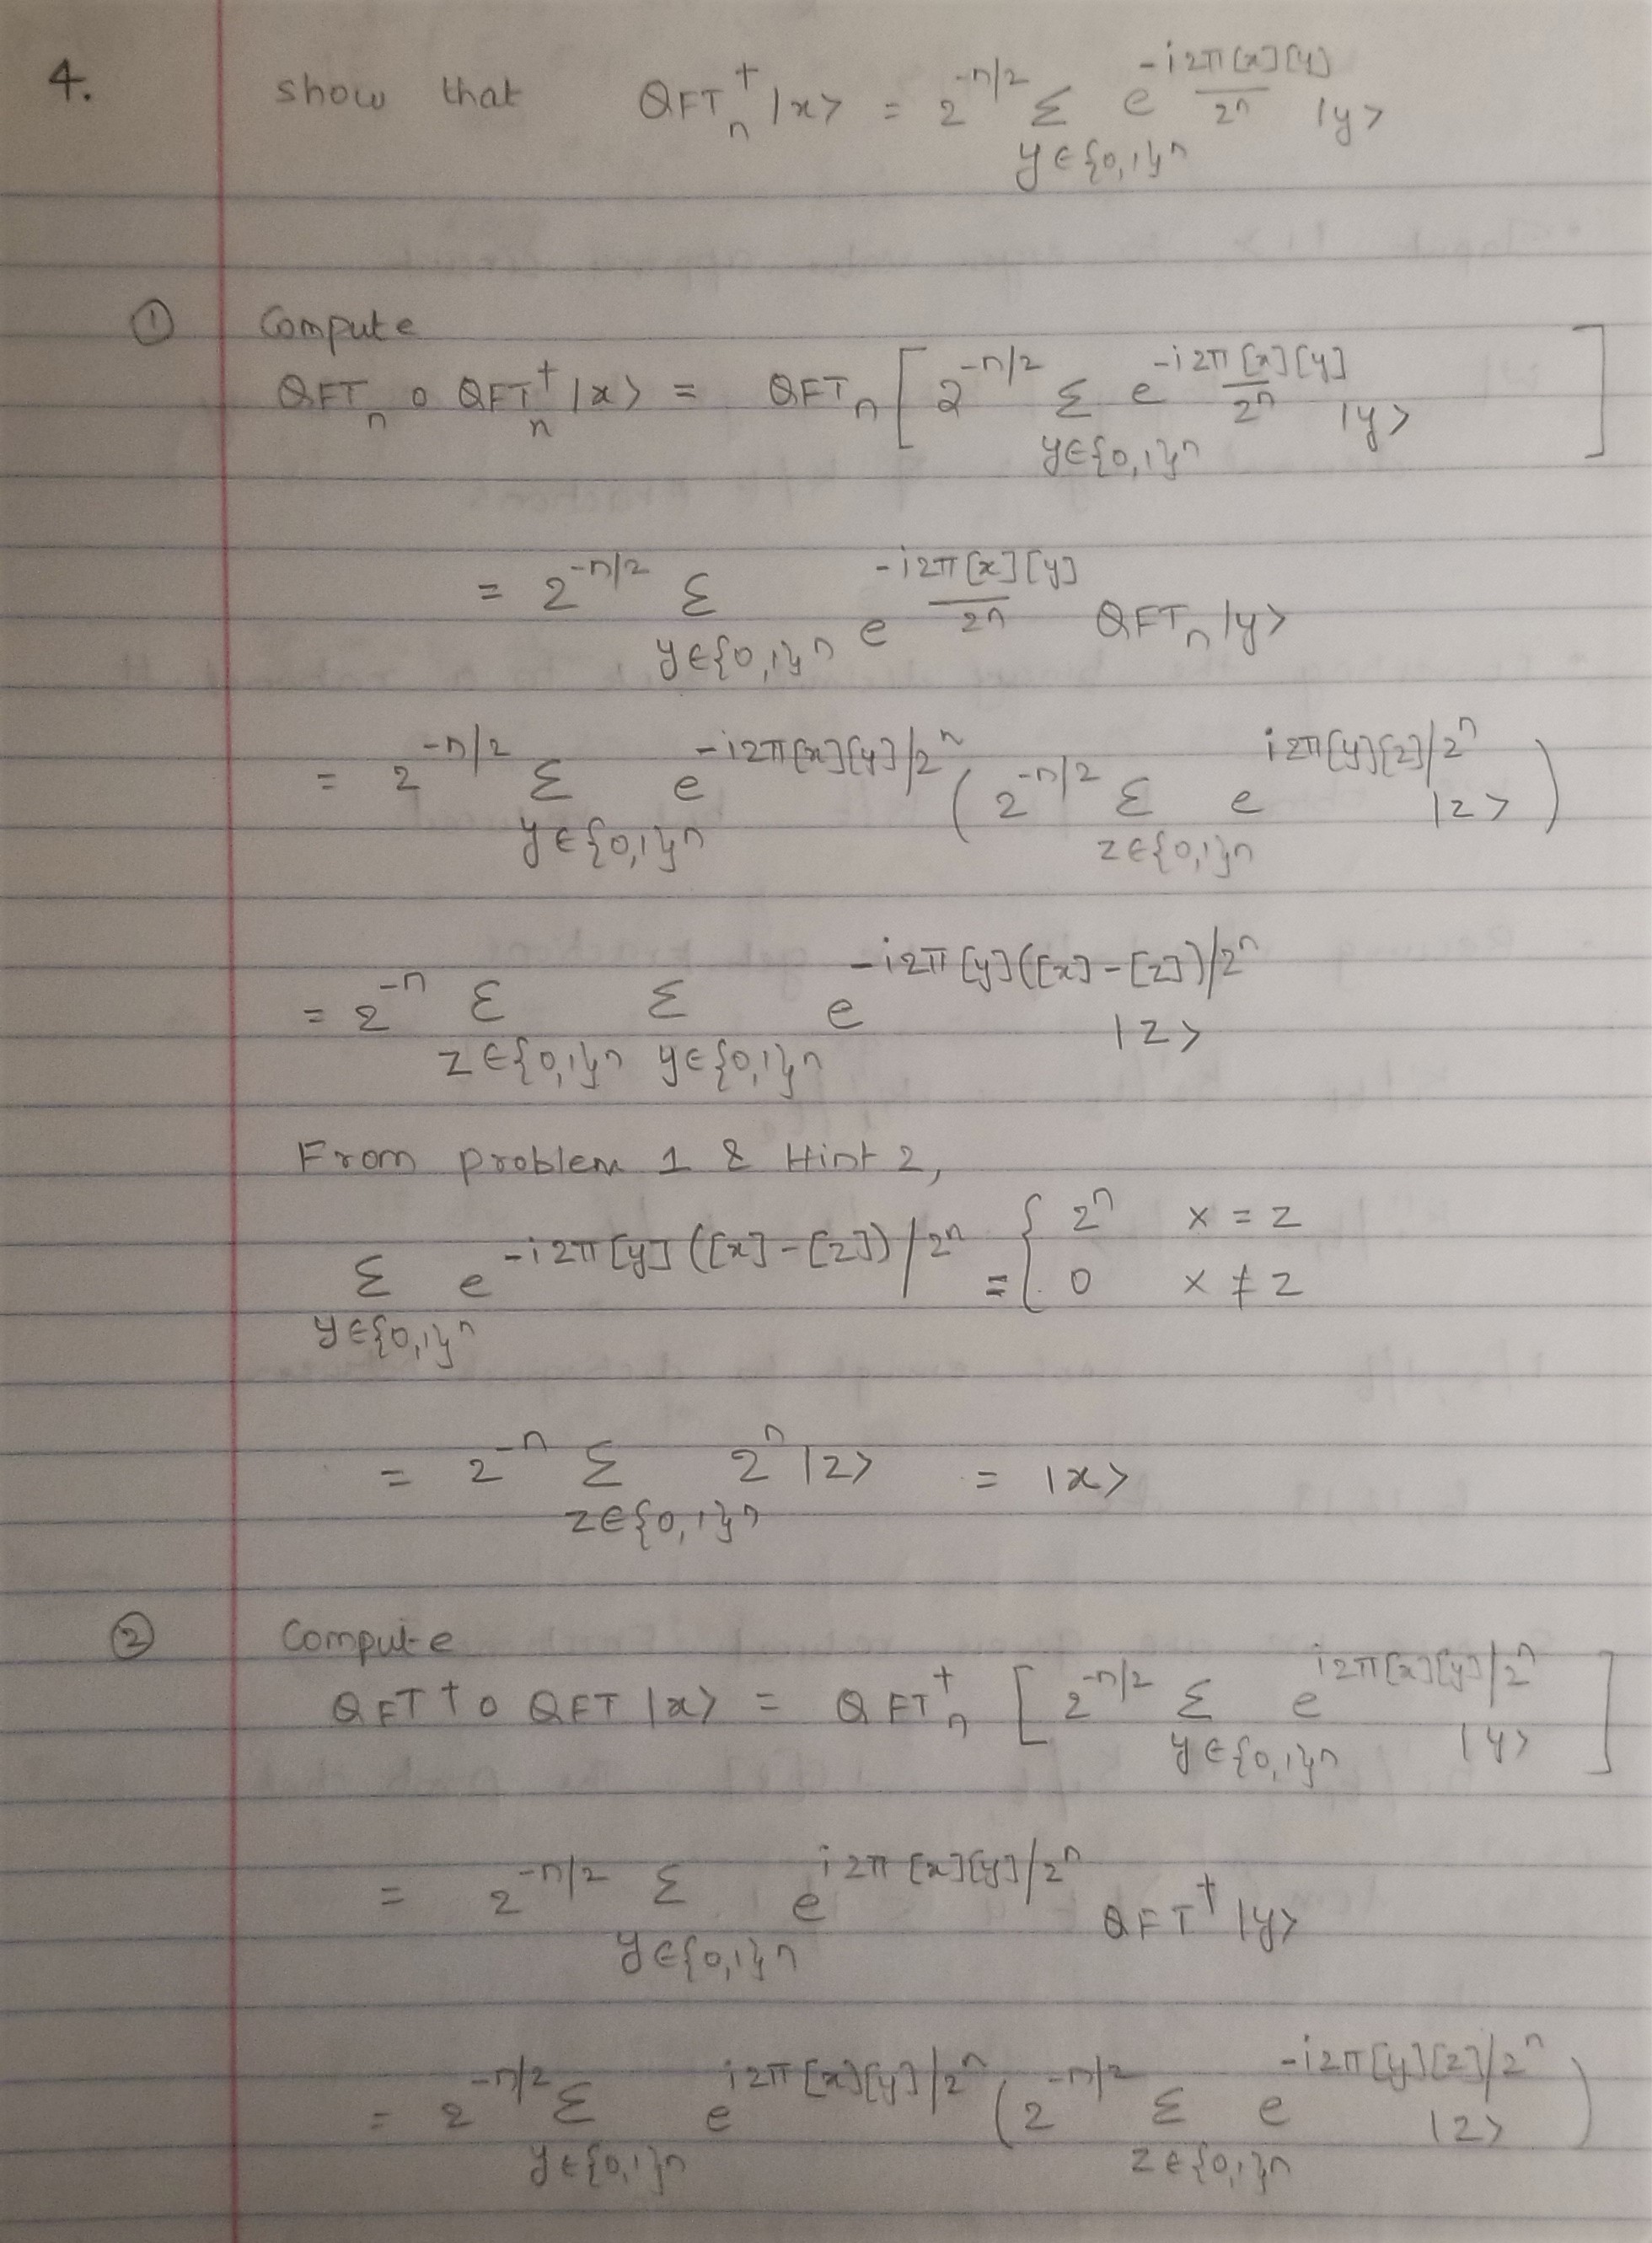 4. show that QFTₙ† |x> = 2^{-n/2} Σ_{y∈{0,1}ⁿ} e^{-i2π[x][y]/2ⁿ} |y>
① Compute
QFTₙ ∘ QFTₙ† |x> = QFTₙ [ 2^{-n/2} Σ_{y∈{0,1}ⁿ} e^{-i2π[x][y]/2ⁿ} |y> ]
= 2^{-n/2} Σ_{y∈{0,1}ⁿ} e^{-i2π[x][y]/2ⁿ} QFTₙ |y>
= 2^{-n/2} Σ_{y∈{0,1}ⁿ} e^{-i2π[x][y]/2ⁿ} ( 2^{-n/2} Σ_{z∈{0,1}ⁿ} e^{i2π[y][z]/2ⁿ} |z> )
= 2^{-n} Σ_{z∈{0,1}ⁿ} Σ_{y∈{0,1}ⁿ} e^{-i2π[y]([x]-[z])/2ⁿ} |z>
From problem 1 & Hint 2,
Σ_{y∈{0,1}ⁿ} e^{-i2π[y]([x]-[z])/2ⁿ} = { 2ⁿ x = z
0 x ≠ z
= 2^{-n} Σ_{z∈{0,1}ⁿ} 2ⁿ |z> = |x>
② Compute
QFT† ∘ QFT |x> = QFTₙ† [ 2^{-n/2} Σ_{y∈{0,1}ⁿ} e^{i2π[x][y]/2ⁿ} |y> ]
= 2^{-n/2} Σ_{y∈{0,1}ⁿ} e^{i2π[x][y]/2ⁿ} QFT† |y>
= 2^{-n/2} Σ_{y∈{0,1}ⁿ} e^{i2π[x][y]/2ⁿ} ( 2^{-n/2} Σ_{z∈{0,1}ⁿ} e^{-i2π[y][z]/2ⁿ} |z> )